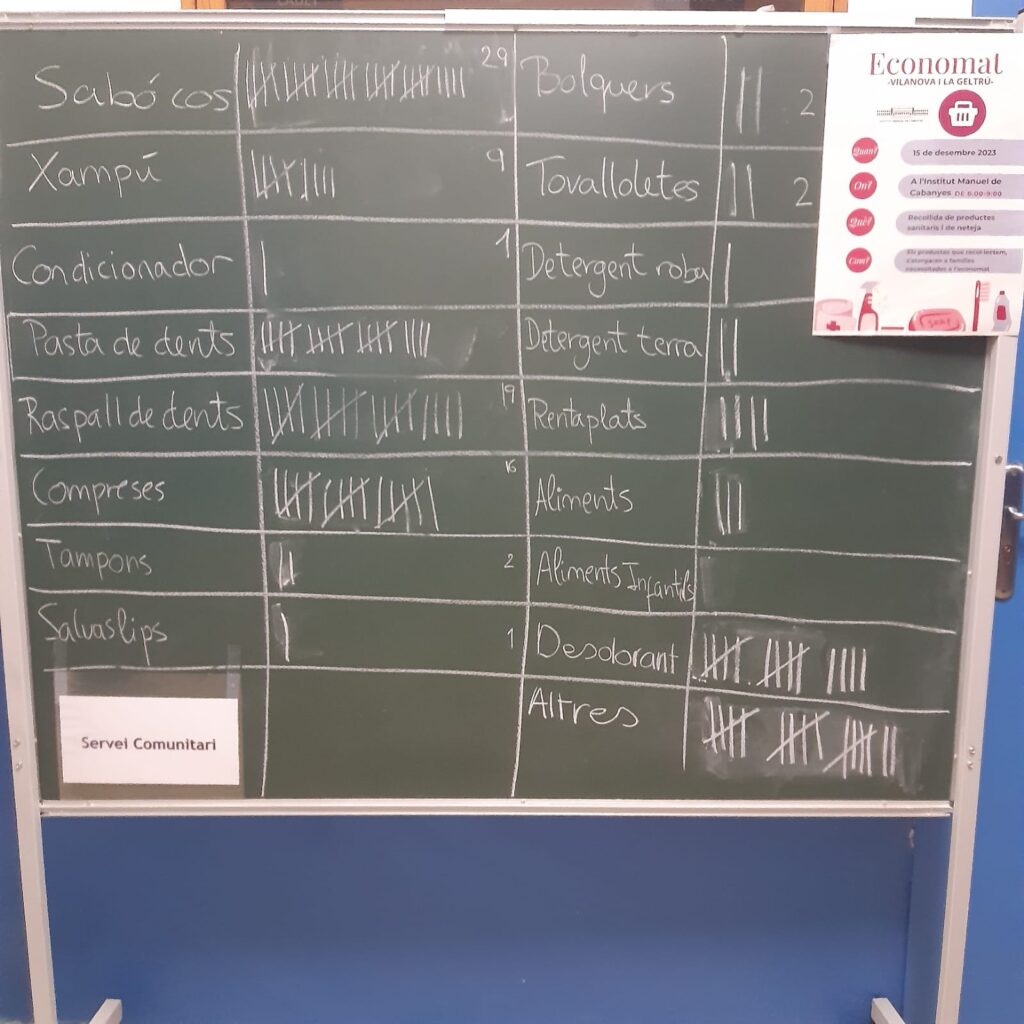 Sabó cos 29
Xampú 9
Condicionador 1
Pasta de dents
Raspall de dents 19
Compreses 16
Tampons 2
Salvaslips 1
Servei Comunitari
Bolquers 2
Tovalloletes 2
Detergent roba
Detergent terra
Rentaplats
Aliments
Aliments Infantils
Desodorant
Altres
Economat
-VILANOVA I LA GELTRÚ-
Quan? 15 de desembre 2023
On? A l'Institut Manuel de
Cabanyes DE 8:00-9:00
Què? Recollida de productes
sanitaris i de neteja
Com? Els productes que recol·lectem,
s'atorgaran a famílies
necessitades a l'economat
SOAP